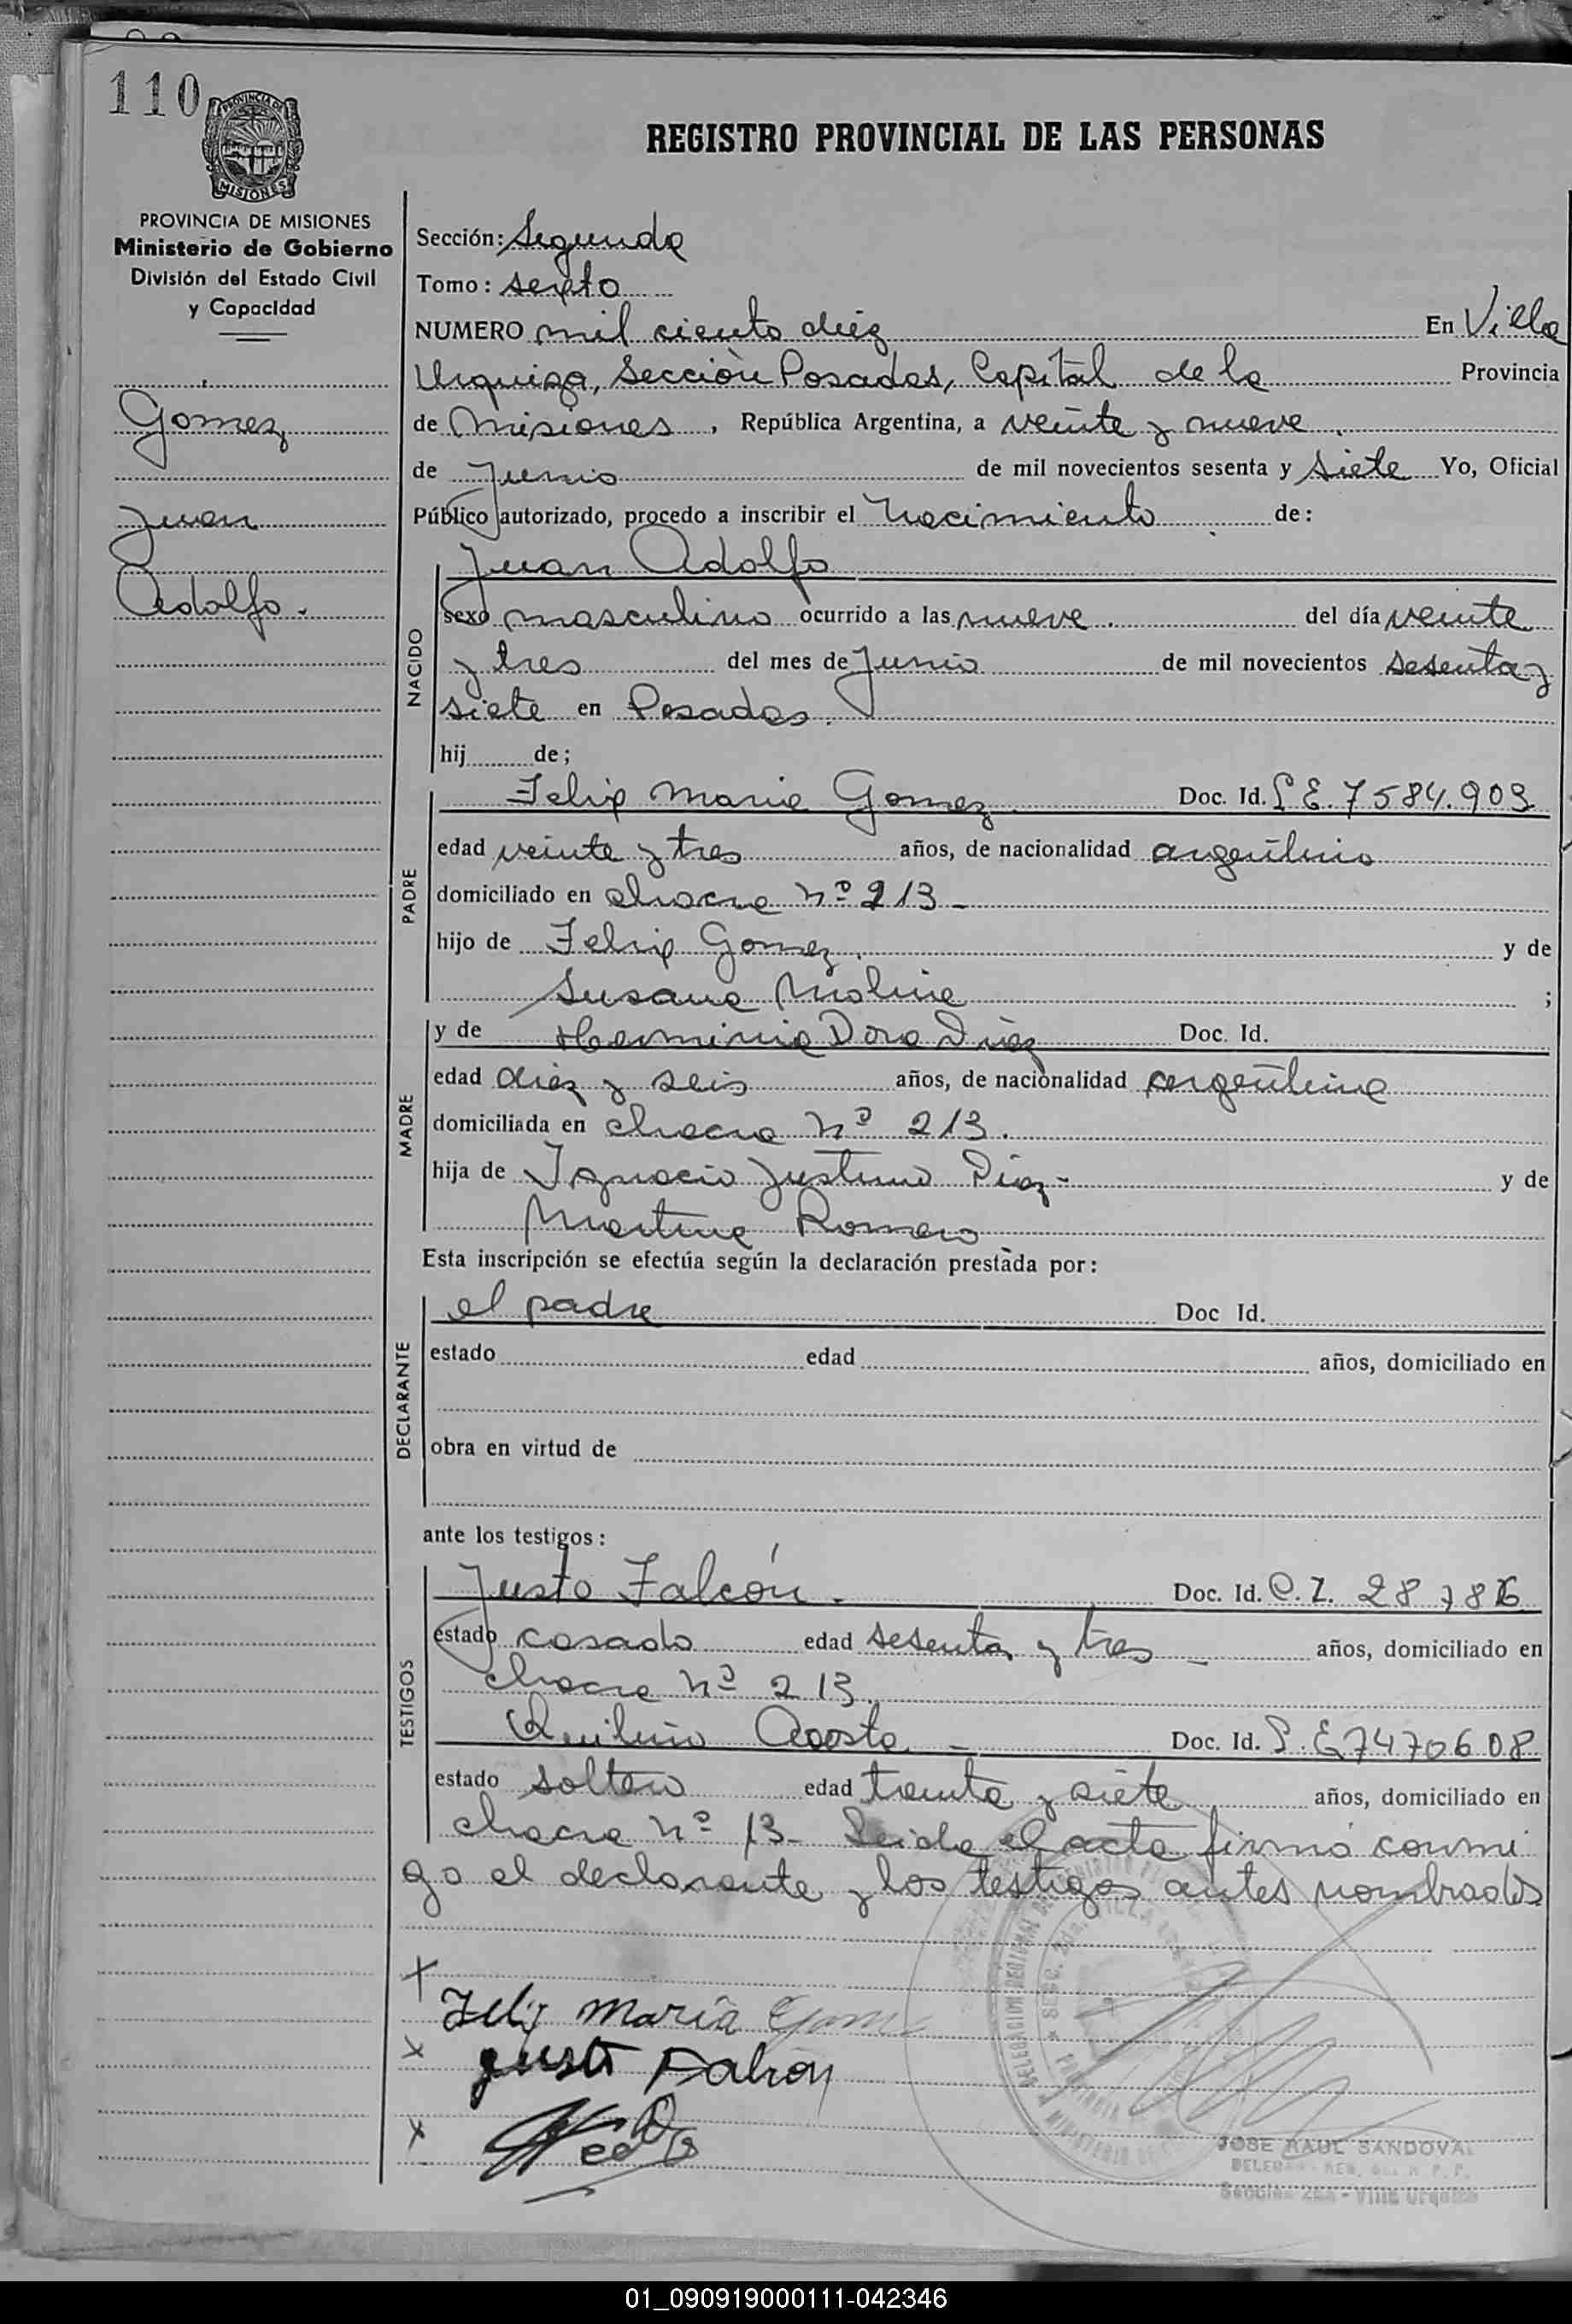 110
PROVINCIA DE
MISIONES
REGISTRO PROVINCIAL DE LAS PERSONAS
PROVINCIA DE MISIONES
Ministerio de Gobierno
División del Estado Civil
y Capacidad
Gomez
Juan
Adolfo.
Sección: Segunda
Tomo: sexto
NUMERO mil ciento diez En Villa
Urquiza, Sección Posadas, Capital de la Provincia
de Misiones, República Argentina, a veinte y nueve
de Junio de mil novecientos sesenta y siete Yo, Oficial
Público autorizado, procedo a inscribir el Nacimiento de:
NACIDO
Juan Adolfo
sexo masculino ocurrido a las nueve. del día veinte
y tres del mes de Junio de mil novecientos sesenta y
siete en Posadas.
hij de;
PADRE
Felix Maria Gomez Doc. Id. L E. 7584.909
edad veinte y tres años, de nacionalidad argentino
domiciliado en chacra Nº 213-
hijo de Felix Gomez. y de
Susana Molina ;
MADRE
y de Herminia Dora Diaz Doc. Id.
edad diez y seis años, de nacionalidad argentina
domiciliada en chacra Nº 213.
hija de Ignacio Justino Diaz- y de
Martina Romero
Esta inscripción se efectúa según la declaración prestada por:
DECLARANTE
el padre Doc Id.
estado edad años, domiciliado en
obra en virtud de
ante los testigos:
TESTIGOS
Justo Falcón. Doc. Id. C. I.
estado casado edad sesenta y tres - años, domiciliado en
chacra Nº 213.
Acosta - Doc. Id. L. E 7470608
estado soltero edad treinta y siete años, domiciliado en
chacra Nº 13- Leida el acta firmó conmi
go el declarante y los testigos antes nombrados
Felix Maria Gom
Justo Falcon
JOSE RAUL SANDOVAL
Sección 2da - Villa Urquiza
01_090919000111-042346